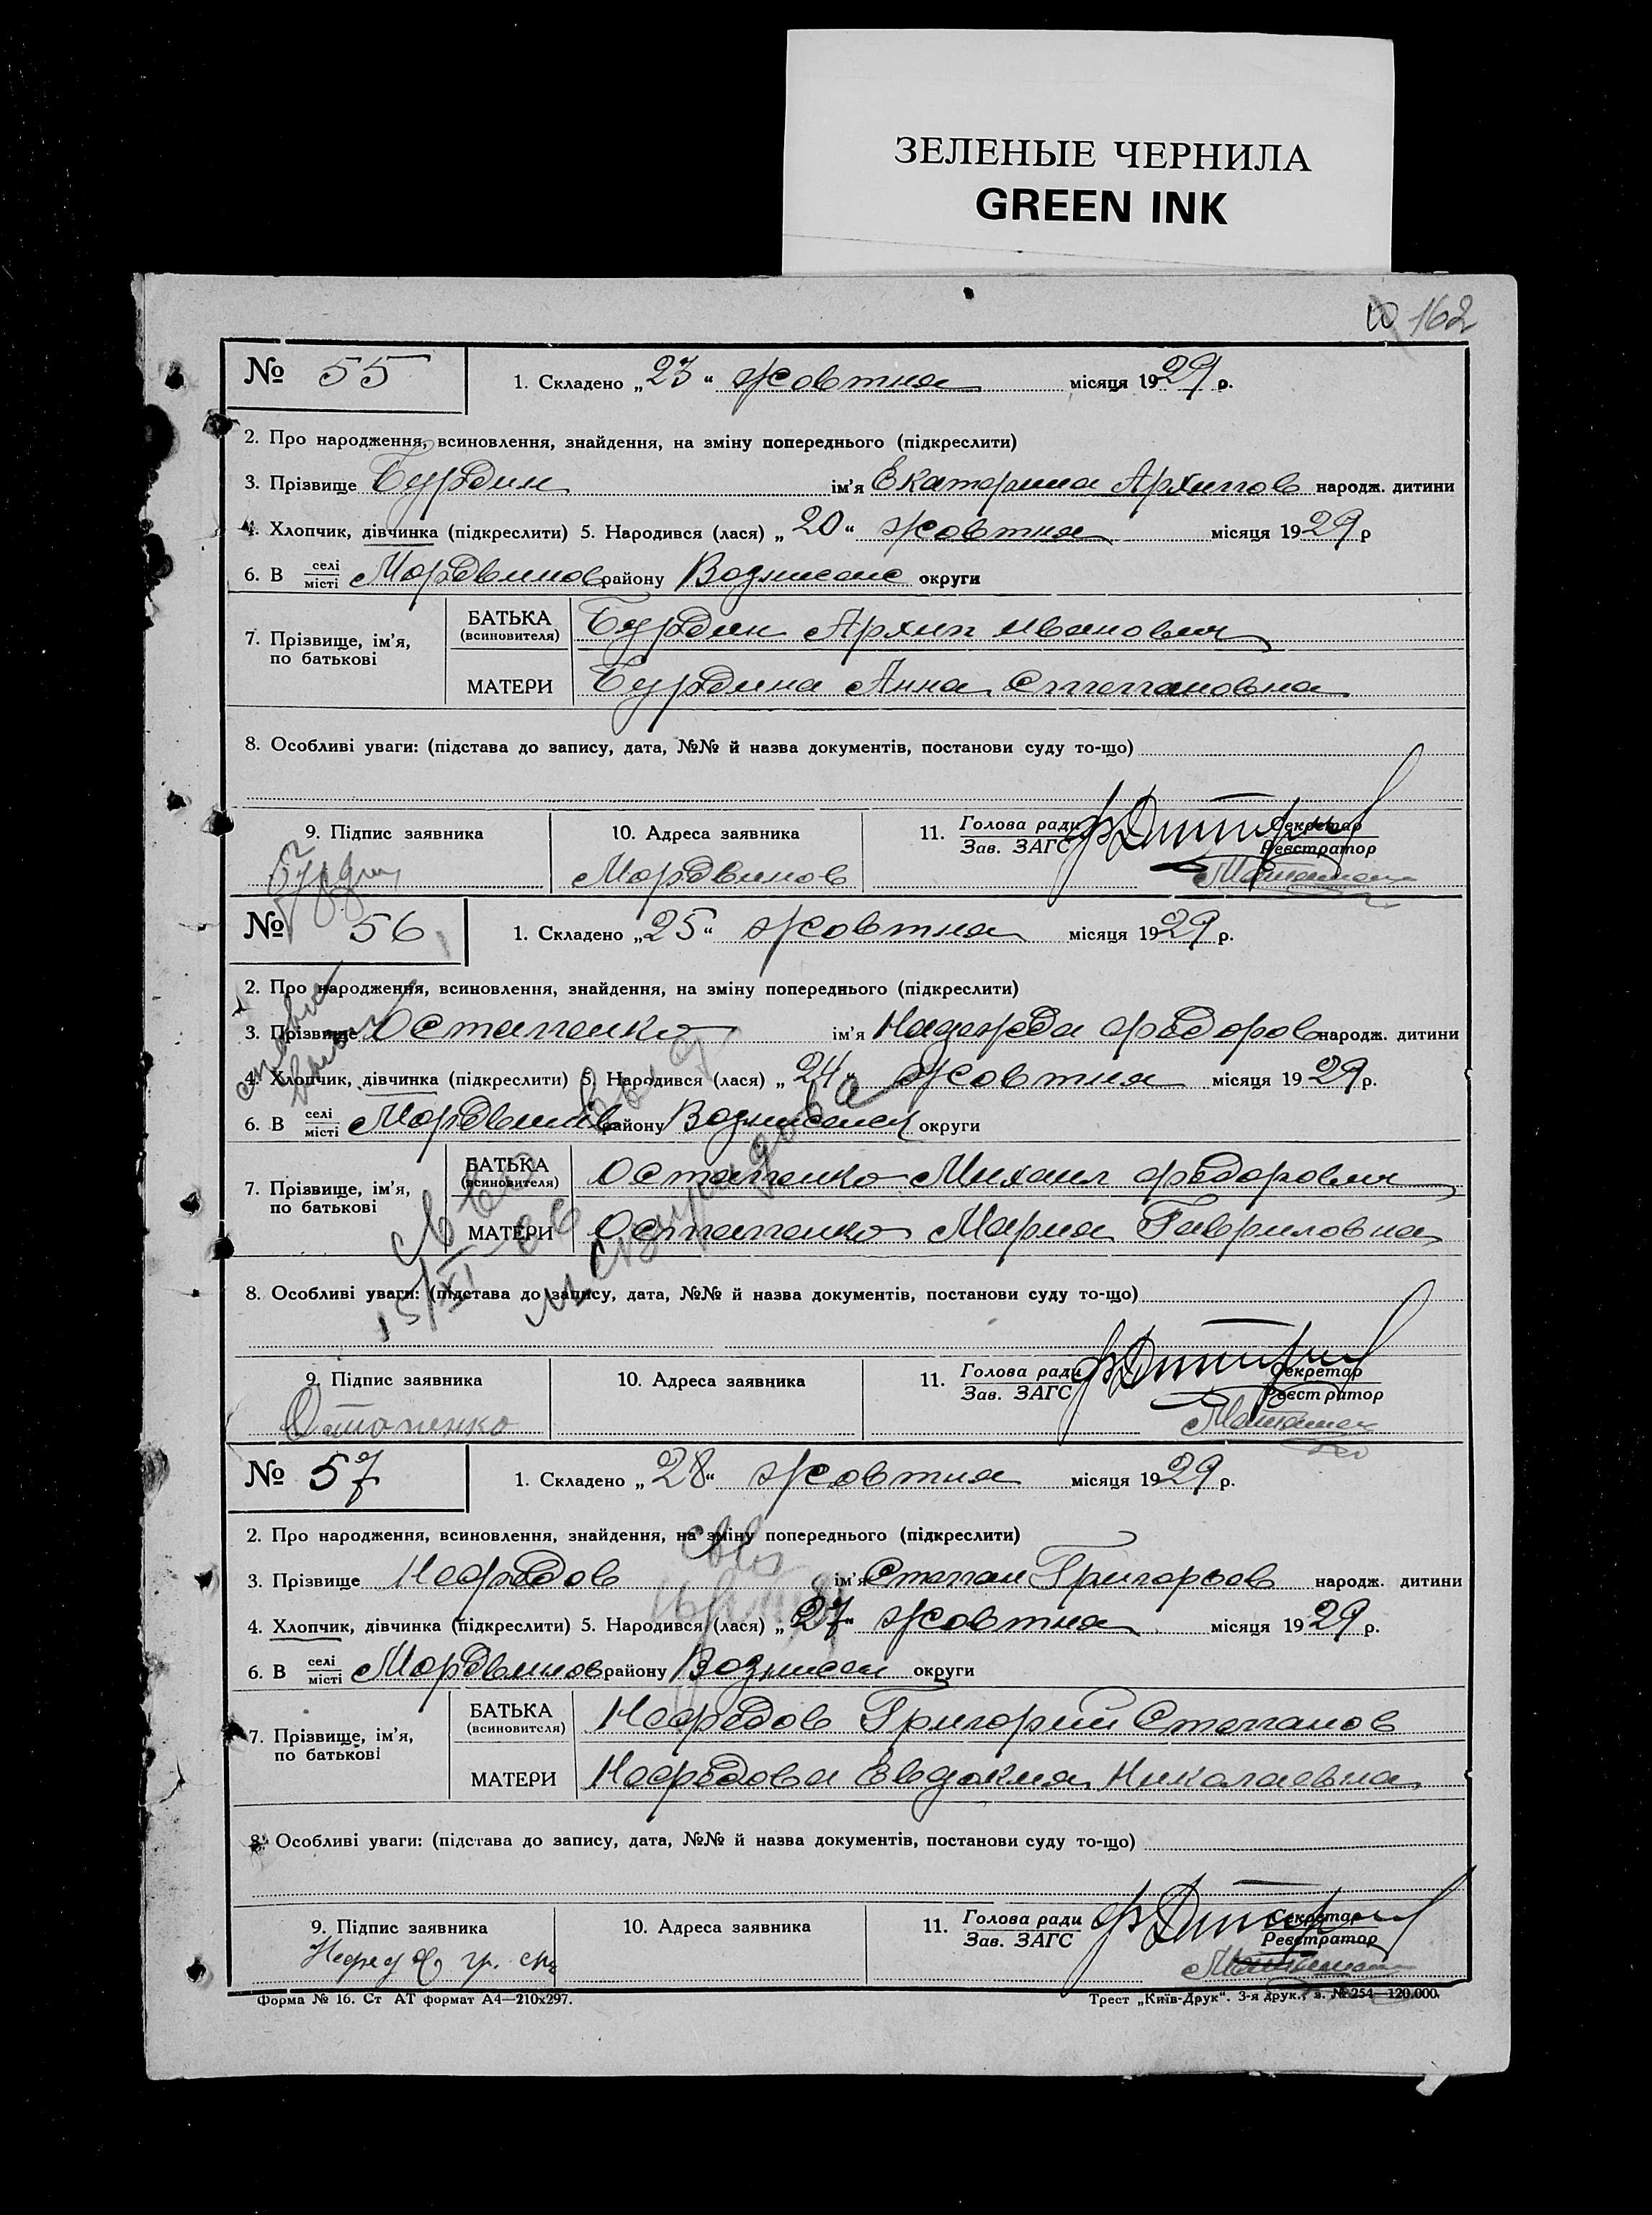 ЗЕЛЕНЫЕ ЧЕРНИЛА
GREEN INK
162
№ 55 1. Складено „23“ жовтня місяця 1929 р.
2. Про народження, всиновлення, знайдення, на зміну попереднього (підкреслити)
3. Прізвище Бурдин ім'я Екатерина Архипов народж. дитини
4. Хлопчик, дівчинка (підкреслити) 5. Народився (лася) „20“ жовтня місяця 1929 р
6. В селі місті Мордвинов району Вознисенс округи
7. Прізвище, ім'я, по батькові
БАТЬКА (всиновителя) Бурдин Архип Иванович
МАТЕРИ Бурдина Анна Степановна
8. Особливі уваги: (підстава до запису, дата, №№ й назва документів, постанови суду то-що)
9. Підпис заявника 10. Адреса заявника 11. Голова ради Зав. ЗАГС Секретар Реєстратор
Бурдин Мордвинов
№ 56 1. Складено „25“ жовтня місяця 1929 р.
2. Про народження, всиновлення, знайдення, на зміну попереднього (підкреслити)
3. Прізвище Остапенко ім'я Надежда Федоров народж. дитини
4. Хлопчик, дівчинка (підкреслити) 5. Народився (лася) „24“ жовтня місяця 1929 р.
6. В селі місті Мордвинів району Вознисенск округи
7. Прізвище, ім'я, по батькові
БАТЬКА (всиновителя) Остапенко Михаил Федорович
МАТЕРИ Остапенко Мария Гавриловна
8. Особливі уваги: (підстава до запису, дата, №№ й назва документів, постанови суду то-що)
9. Підпис заявника 10. Адреса заявника 11. Голова ради Зав. ЗАГС Секретар Реєстратор
Остапенко
№ 57 1. Складено „28“ жовтня місяця 1929 р.
2. Про народження, всиновлення, знайдення, на зміну попереднього (підкреслити)
3. Прізвище Нефедов ім'я Степан Григорьев народж. дитини
4. Хлопчик, дівчинка (підкреслити) 5. Народився (лася) „27“ жовтня місяця 1929 р.
6. В селі місті Мордвинов району Вознисен округи
7. Прізвище, ім'я, по батькові
БАТЬКА (всиновителя) Нефедов Григорий Степанов
МАТЕРИ Нефедова Евдокия Николаевна
8. Особливі уваги: (підстава до запису, дата, №№ й назва документів, постанови суду то-що)
9. Підпис заявника 10. Адреса заявника 11. Голова ради Зав. ЗАГС Секретар Реєстратор
Форма № 16. Ст АТ формат А4—210х297. Трест „Київ-Друк“. 3-я друк., з. № 254—120.000.